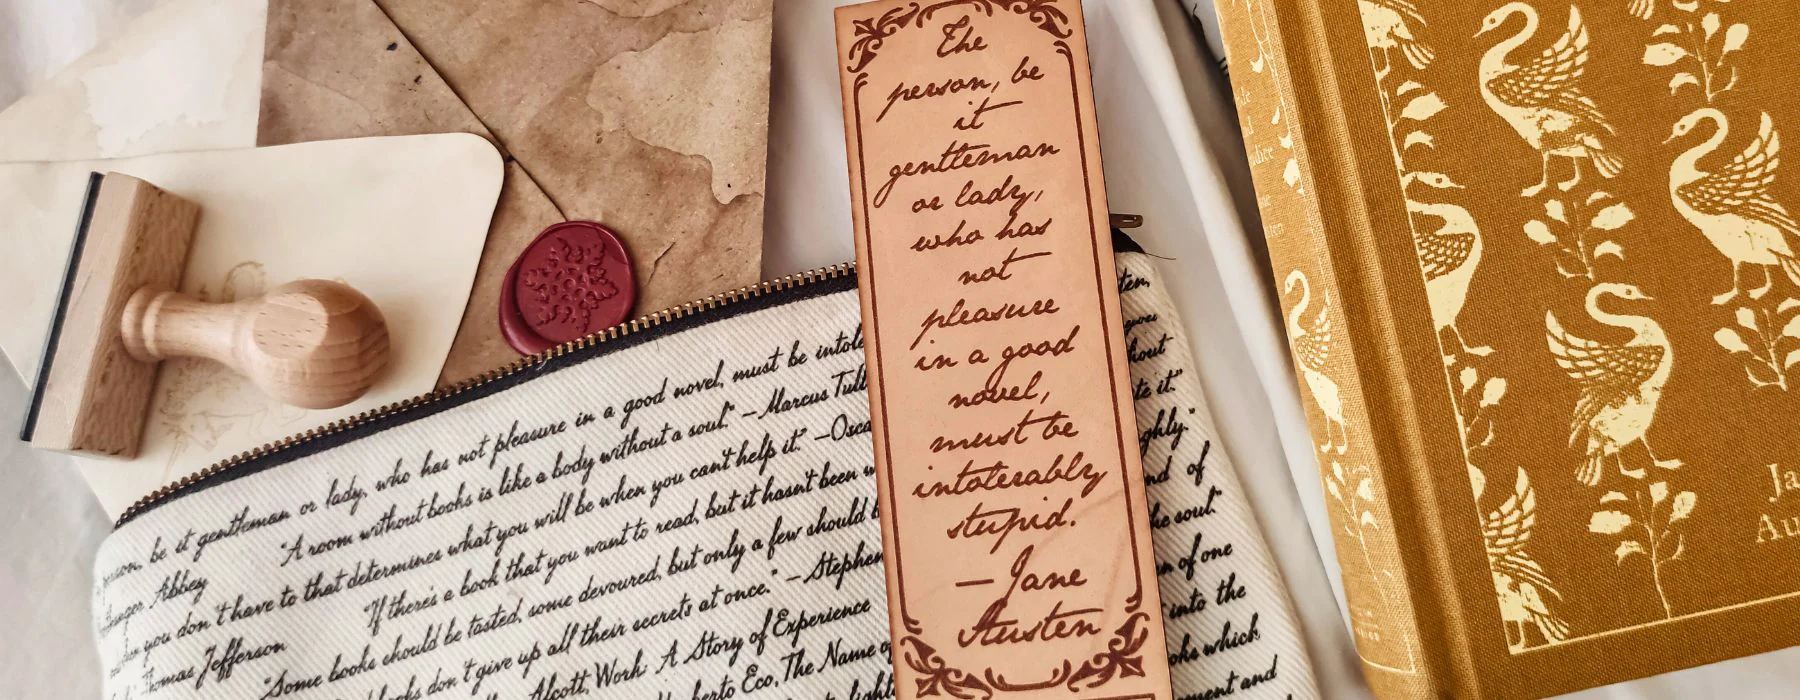 The
person, be
it
gentleman
or lady,
who has
not
pleasure
in a good
novel,
must be
intolerably
stupid.
—Jane
Austen
be it gentleman or lady, who has not pleasure in a good novel, must be
Abbey "A room without books is like a body without a soul." — Marcus
you don't have to that determines what you will be when you can't help it." —
Thomas Jefferson "If there's a book that you want to read, but it hasn't been
"Some books should be tasted, some devoured, but only a few should
books don't give up all their secrets at once." — Stephen
Alcott, Work: A Story of Experience
Eco, The Name
it."
and of
the soul."
of one
into the
which
and